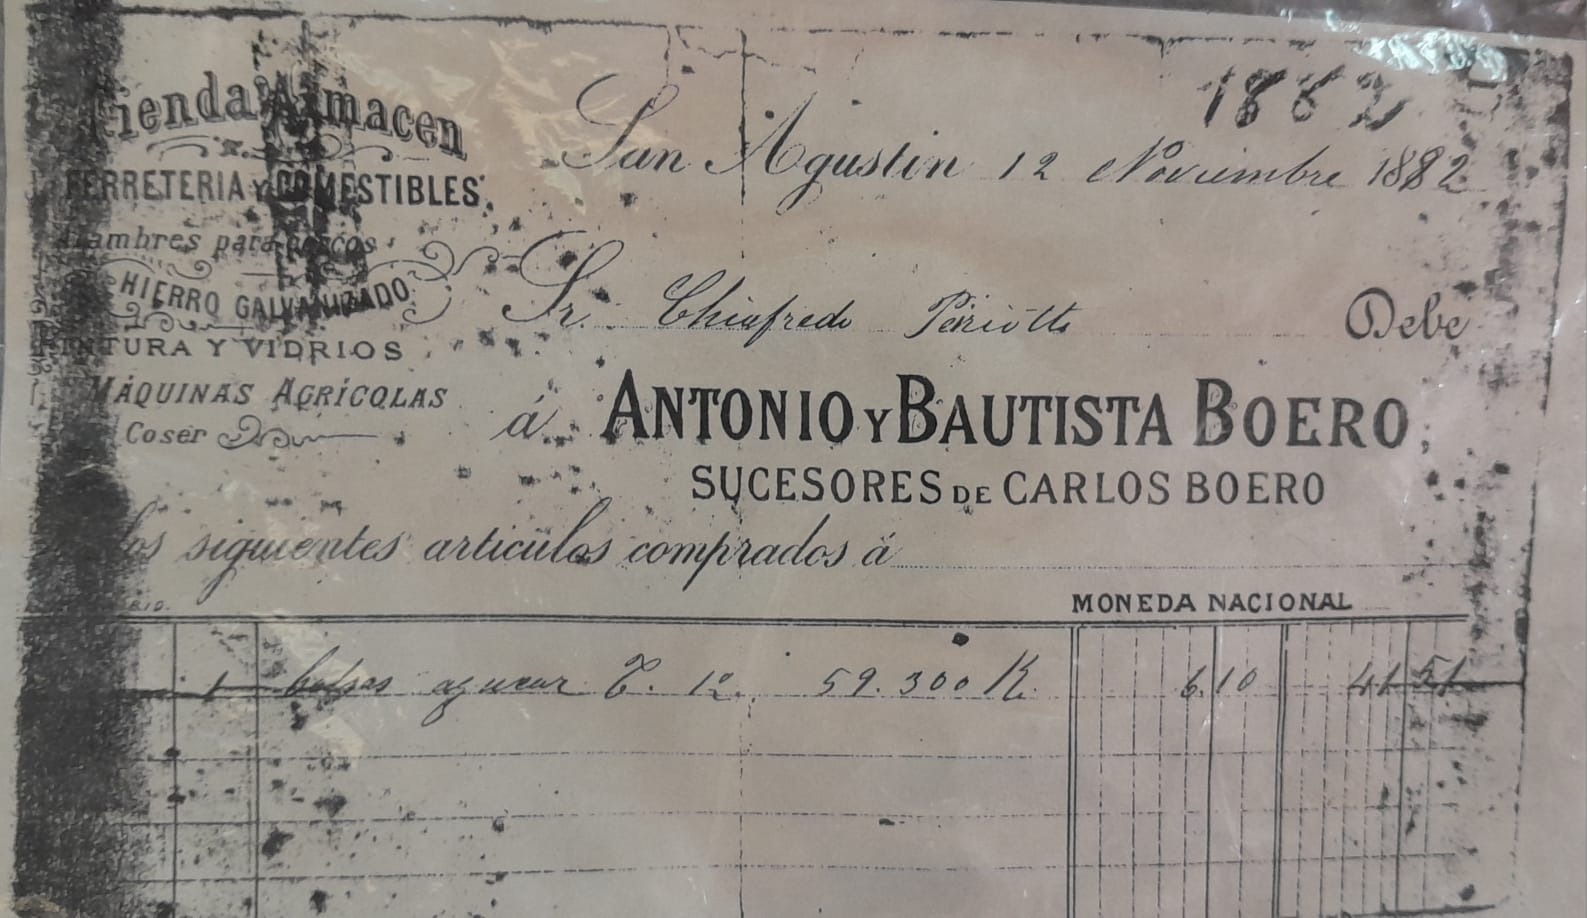 Tienda Almacen
FERRETERIA Y COMESTIBLES
Alambres para cercos
HIERRO GALVANIZADO
PINTURA Y VIDRIOS
MÁQUINAS AGRÍCOLAS
Coser
1882
San Agustin 12 Noviembre 1882
Sr. Chiafredo Debe
á ANTONIO Y BAUTISTA BOERO
SUCESORES DE CARLOS BOERO
los siguientes artículos comprados á
MONEDA NACIONAL
1 bolsas azucar 1ª 59.300 K. 6.10 41 51